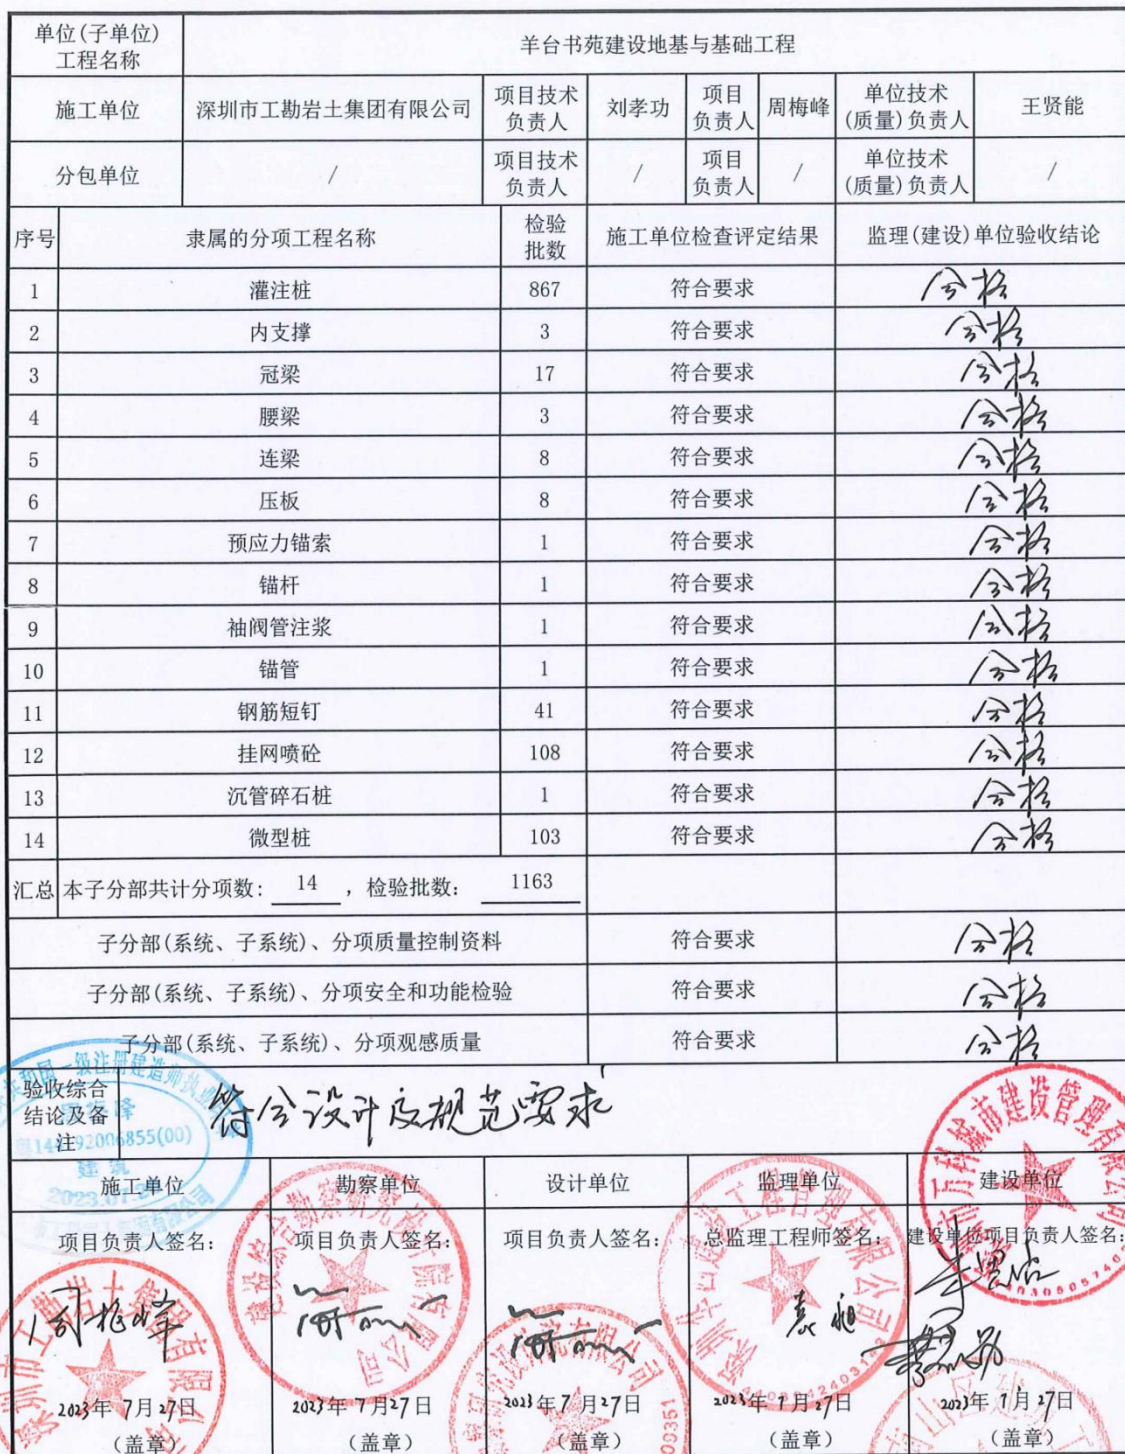 单位(子单位)工程名称 羊台书苑建设地基与基础工程
施工单位 深圳市工勘岩土集团有限公司 项目技术负责人 刘孝功 项目负责人 周梅峰 单位技术(质量)负责人 王贤能
分包单位 / 项目技术负责人 / 项目负责人 / 单位技术(质量)负责人 /
序号 隶属的分项工程名称 检验批数 施工单位检查评定结果 监理(建设)单位验收结论
1 灌注桩 867 符合要求 合格
2 内支撑 3 符合要求 合格
3 冠梁 17 符合要求 合格
4 腰梁 3 符合要求 合格
5 连梁 8 符合要求 合格
6 压板 8 符合要求 合格
7 预应力锚索 1 符合要求 合格
8 锚杆 1 符合要求 合格
9 袖阀管注浆 1 符合要求 合格
10 锚管 1 符合要求 合格
11 钢筋短钉 41 符合要求 合格
12 挂网喷砼 108 符合要求 合格
13 沉管碎石桩 1 符合要求 合格
14 微型桩 103 符合要求 合格
汇总 本子分部共计分项数: 14 ,检验批数: 1163
子分部(系统、子系统)、分项质量控制资料 符合要求 合格
子分部(系统、子系统)、分项安全和功能检验 符合要求 合格
子分部(系统、子系统)、分项观感质量 符合要求 合格
验收综合结论及备注 符合设计及规范要求
施工单位 勘察单位 设计单位 监理单位 建设单位
项目负责人签名: 项目负责人签名: 项目负责人签名: 总监理工程师签名: 建设单位项目负责人签名:
周梅峰
2023年7月27日 2023年7月27日 2023年7月27日 2023年7月27日 2023年7月27日
(盖章) (盖章) (盖章) (盖章) (盖章)